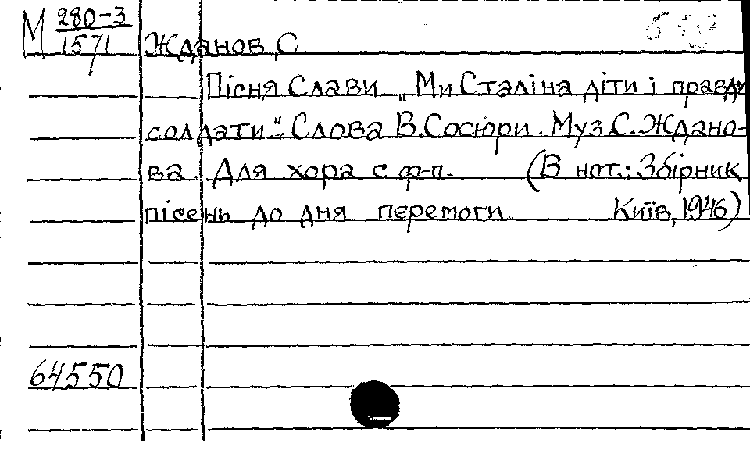 М 280-3
1571
Жданов, С
Пісня Слави „Ми Сталіна діти і правди
солдати." Слова В.Сосюри. Муз.С.Ждано-
ва. Для хора с ф-п. (В нот.: Збірник
пісень до дня перемоги Київ, 1946)
64550